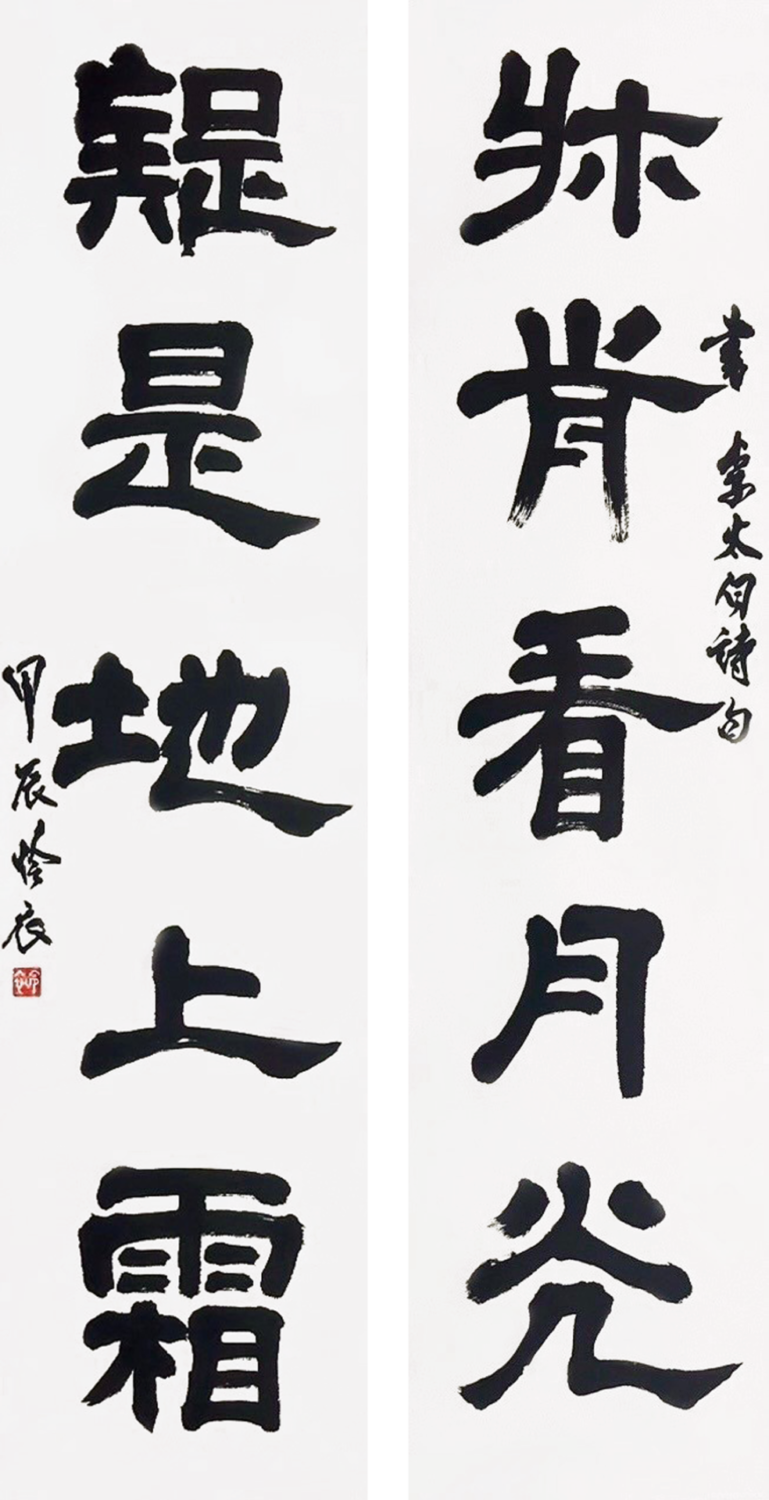 牀前看月光
書李太白詩句
疑是地上霜
甲辰